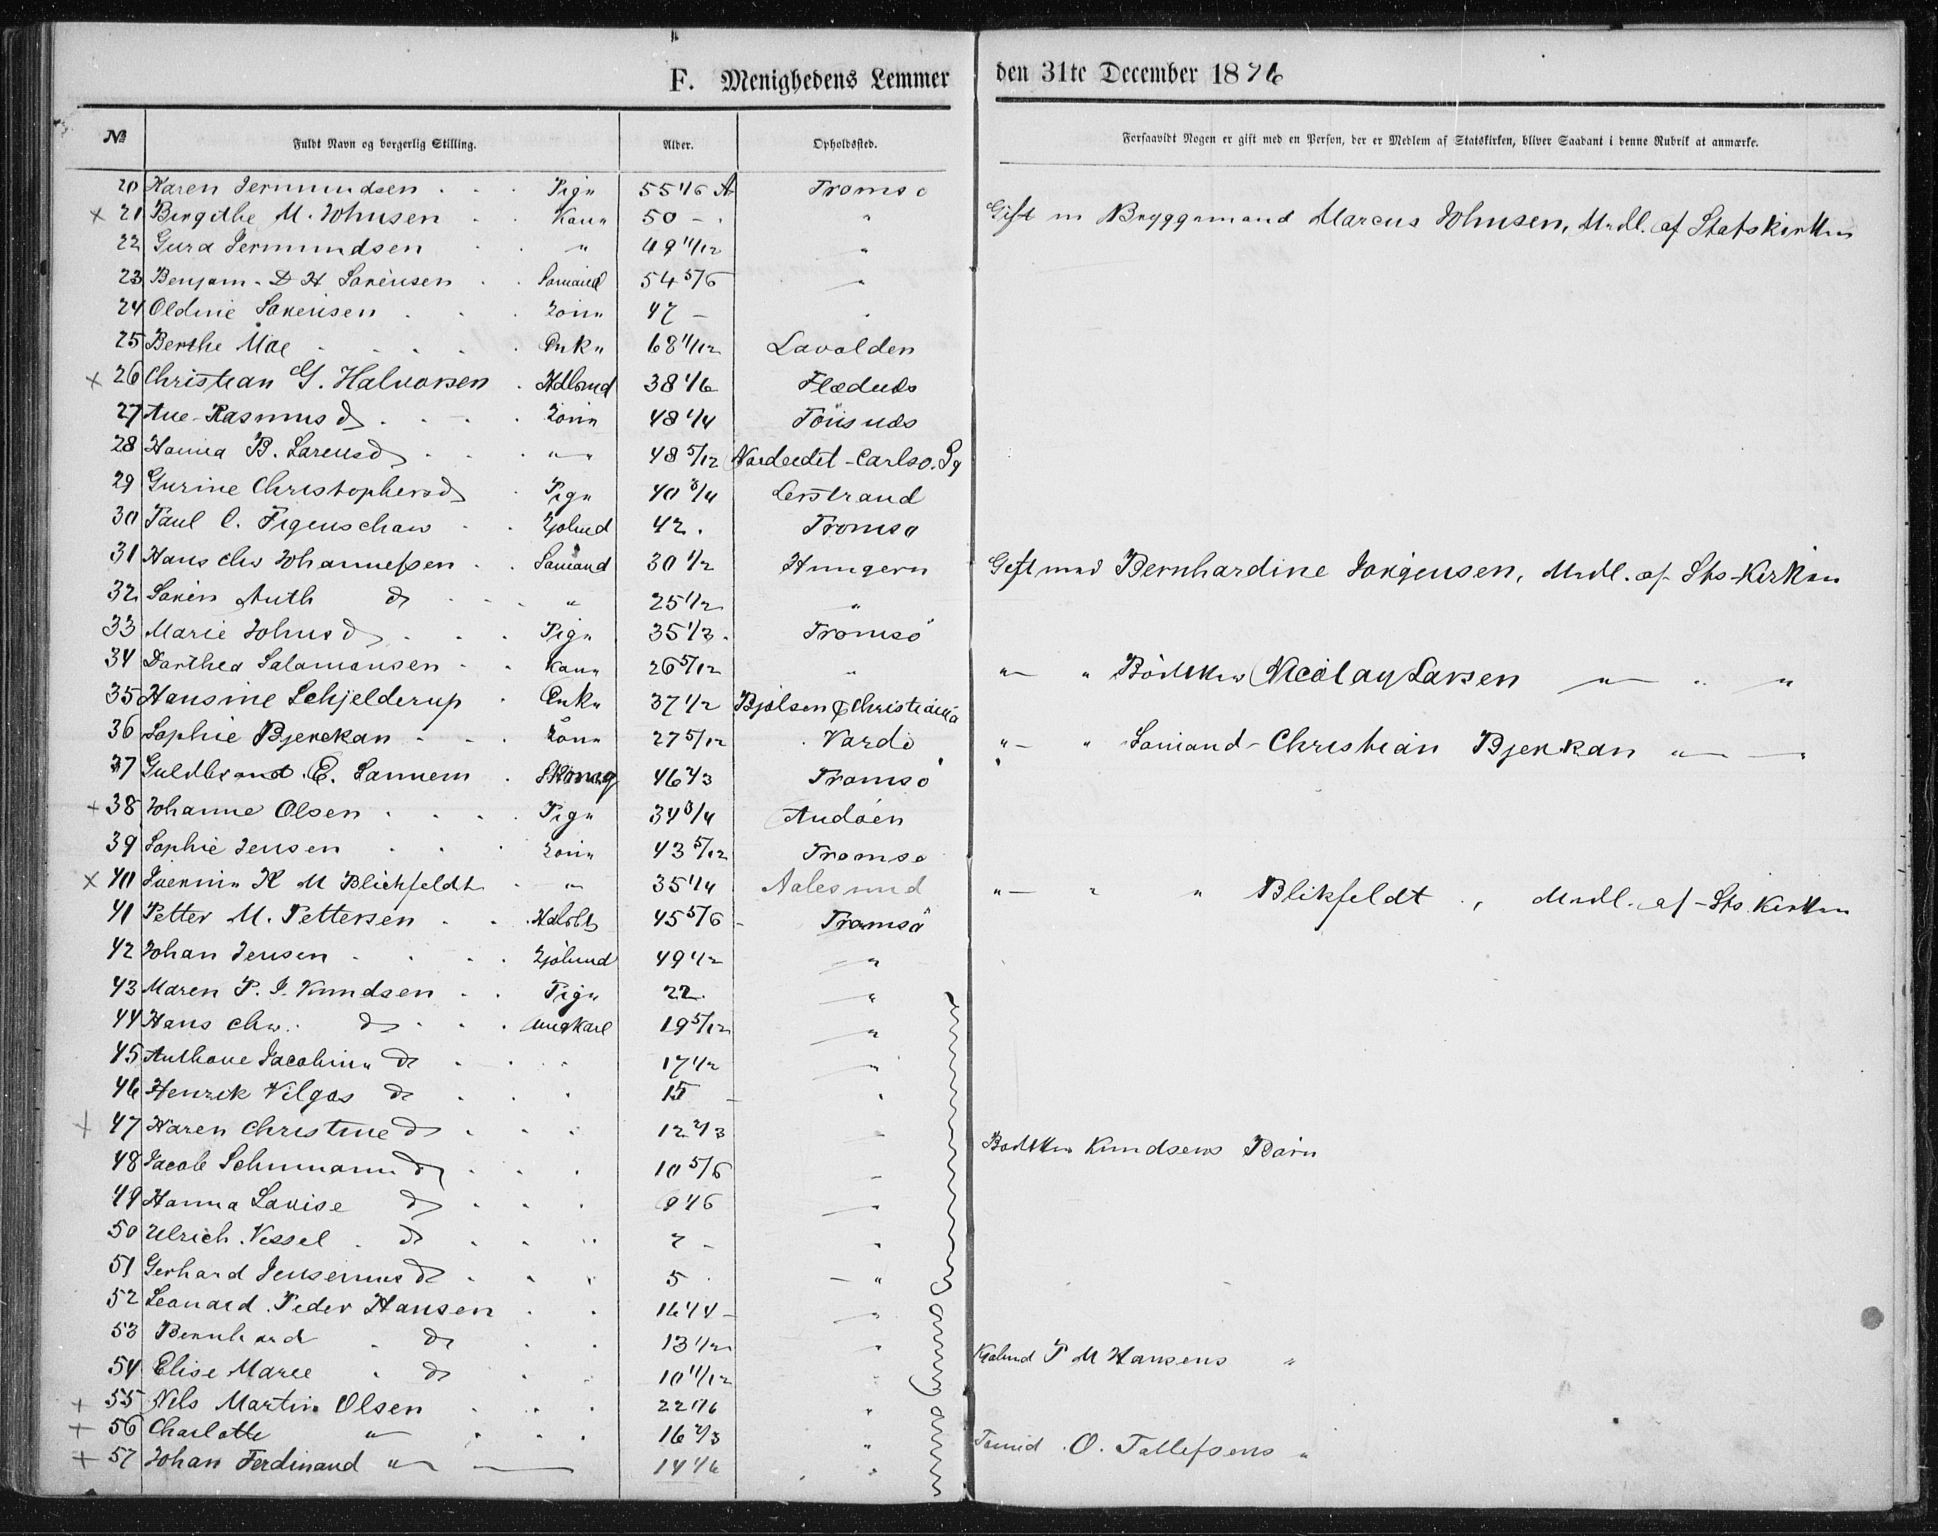 F. Menighedens Lemmer den 31te December 1876
№ Fuldt Navn og borgerlig Stilling. Alder. Opholdssted. Forsaavidt Nogen er gift med en Person, der er Medlem af Statskirken, bliver Saadant i denne Rubrik at anmærke.
20 Karen Jermundsen Pige 55 1/6 A Tromsø
× 21 Birgithe M. Johnsen Kone 50 - " Gift m Bryggemand Marcus Johnsen, Medl. af Statskirken
22 Gura Jermundsen " 49 11/12 "
23 Benjam. D H Sørensen Sømand 54 5/6 "
24 Oldine Sørensen Kone 47 - "
25 Berthe Moe Enke 68 11/12 Lavolden
× 26 Christian G. Halvorsen Hdlsmd 38 1/6
27 Ane Rasmusd Kone 48 1/4 Tönsnæs
28 Hanna B. Larensd " 48 5/12 Carlsø. Sg
29 Gurine Christophersd Pige 40 3/4 Lerstrand
30 Paul C. Figenschow 42. Tromsø
31 Hans Chr Johannessen Sømand 30 1/2 Hungern Gift med Bernhardine Jørgensen, Medl. af Sts-Kirken
32 Søren Anth do " 25 1/2 "
33 Marie Johnsd Pige 35 1/3 Tromsö
34 Dorthea Salamonsen Kone 26 5/12 " " " Bødker Nicolay Larsen " " "
35 Hansine Schjelderup Enke 37 1/2 Bjølsen Christiania
36 Sophie Bjerckan Kone 27 5/12 Vardö " " Sømand Christian Bjerkan "
37 Guldbrand E. Sannem 46 2/3 Tromsö
+ 38 Johanne Olsen Pige 34 3/4 Andøen
39 Sophie Jensen Kone 43 5/12 Tromsø
× 40 K M Blichfeldt " 35 1/4 Aalesund " " " Blikfeldt, Medl. af Sts. Kirken
41 Petter M. Pettersen 45 5/6 Tromsö
42 Johan Jensen 49 1/2 "
43 Maren P. J. Knudsen Pige 22. "
44 Hans Chr. do ungkarl 19 5/12 "
45 Anthone Jacobine do 17 1/2 "
46 Henrik do 15 - "
+ 47 Karen Christine do 12 2/3 " Bødker Knudsens Børn
48 Jacob Schumann do 10 5/6 "
49 Hanna Lovise do 9 1/6 "
50 Ulrich Vessel do 7 - "
51 Gerhard Jensenius do 5 "
52 Leonard Peder Hansen 16 1/4 "
53 Bernhard do 13 1/2 "
54 Elise Marie do 10 11/12 " P M Hansens "
+ 55 Nils Martin Olsen 22 1/6 "
+ 56 Charlotte " 16 2/3 " O. Tollefsens "
+ 57 Johan Ferdinand " 14 1/6 "